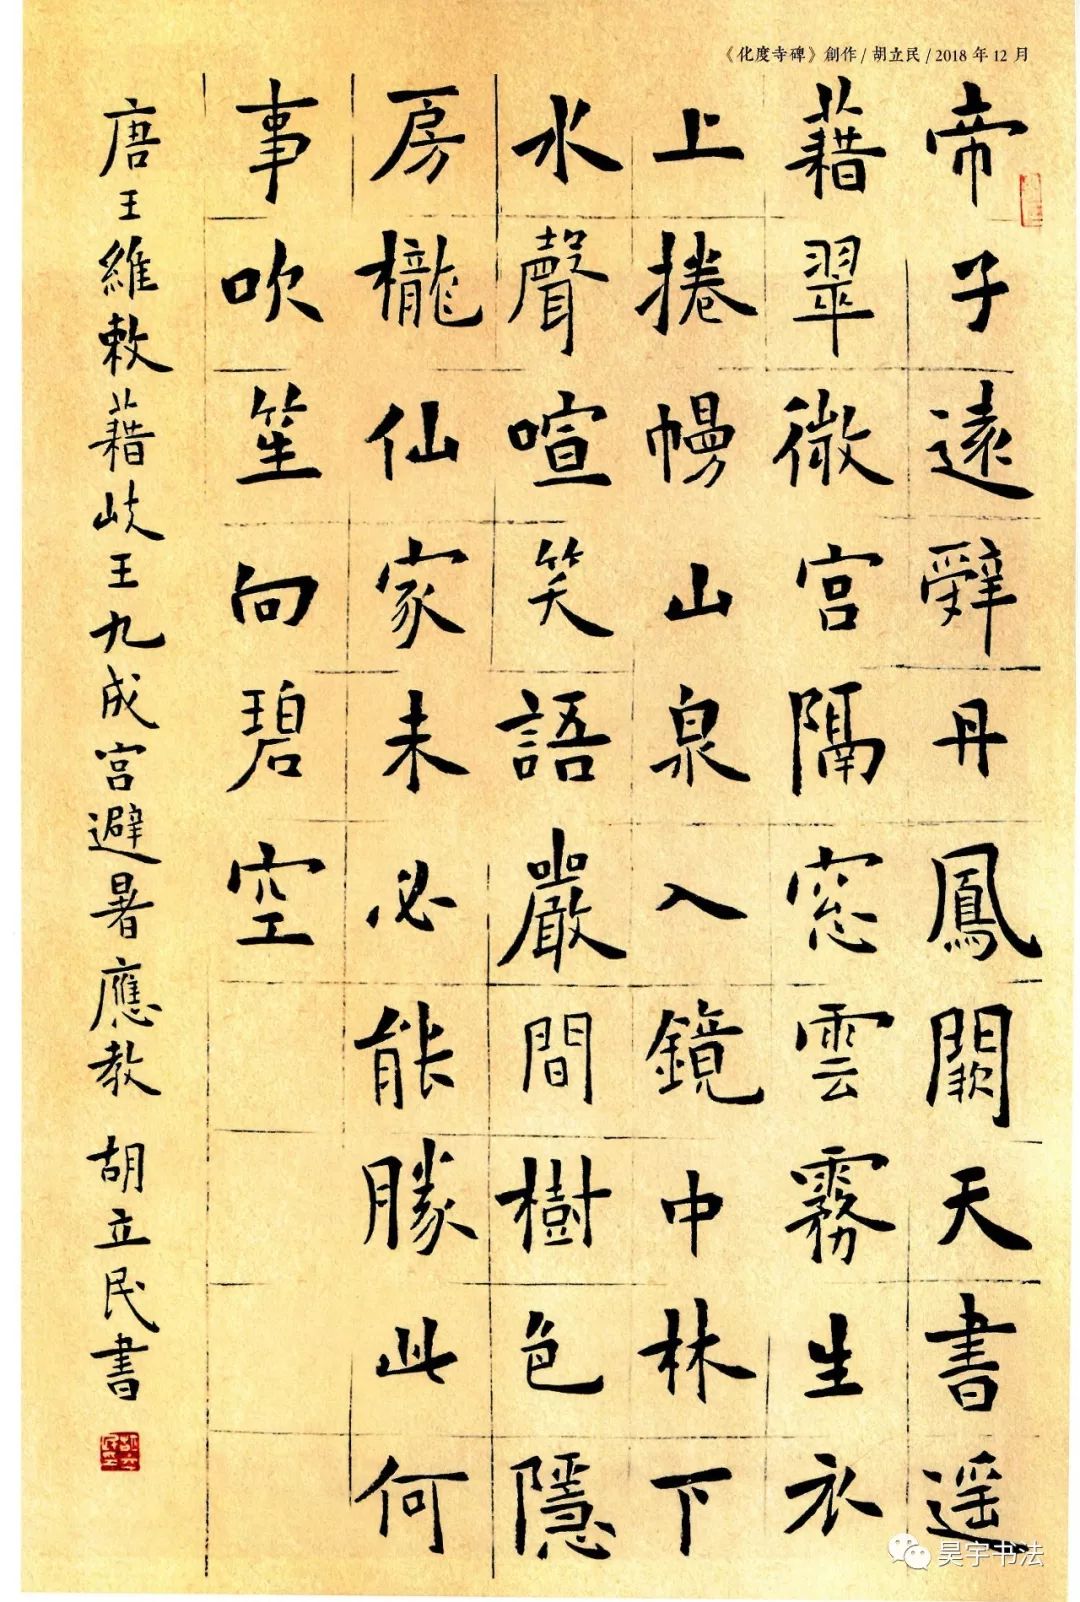 《化度寺碑》創作/胡立民/2018年12月
帝子遠辭丹鳳闕天書遥
藉翠微宫隔窓雲霧生衣
上捲幔山泉入鏡中林下
水聲喧笑語巖間樹色隱
房櫳仙家未必能勝此何
事吹笙向碧空
唐王維敕藉岐王九成宫避暑應教 胡立民書
昊宇书法